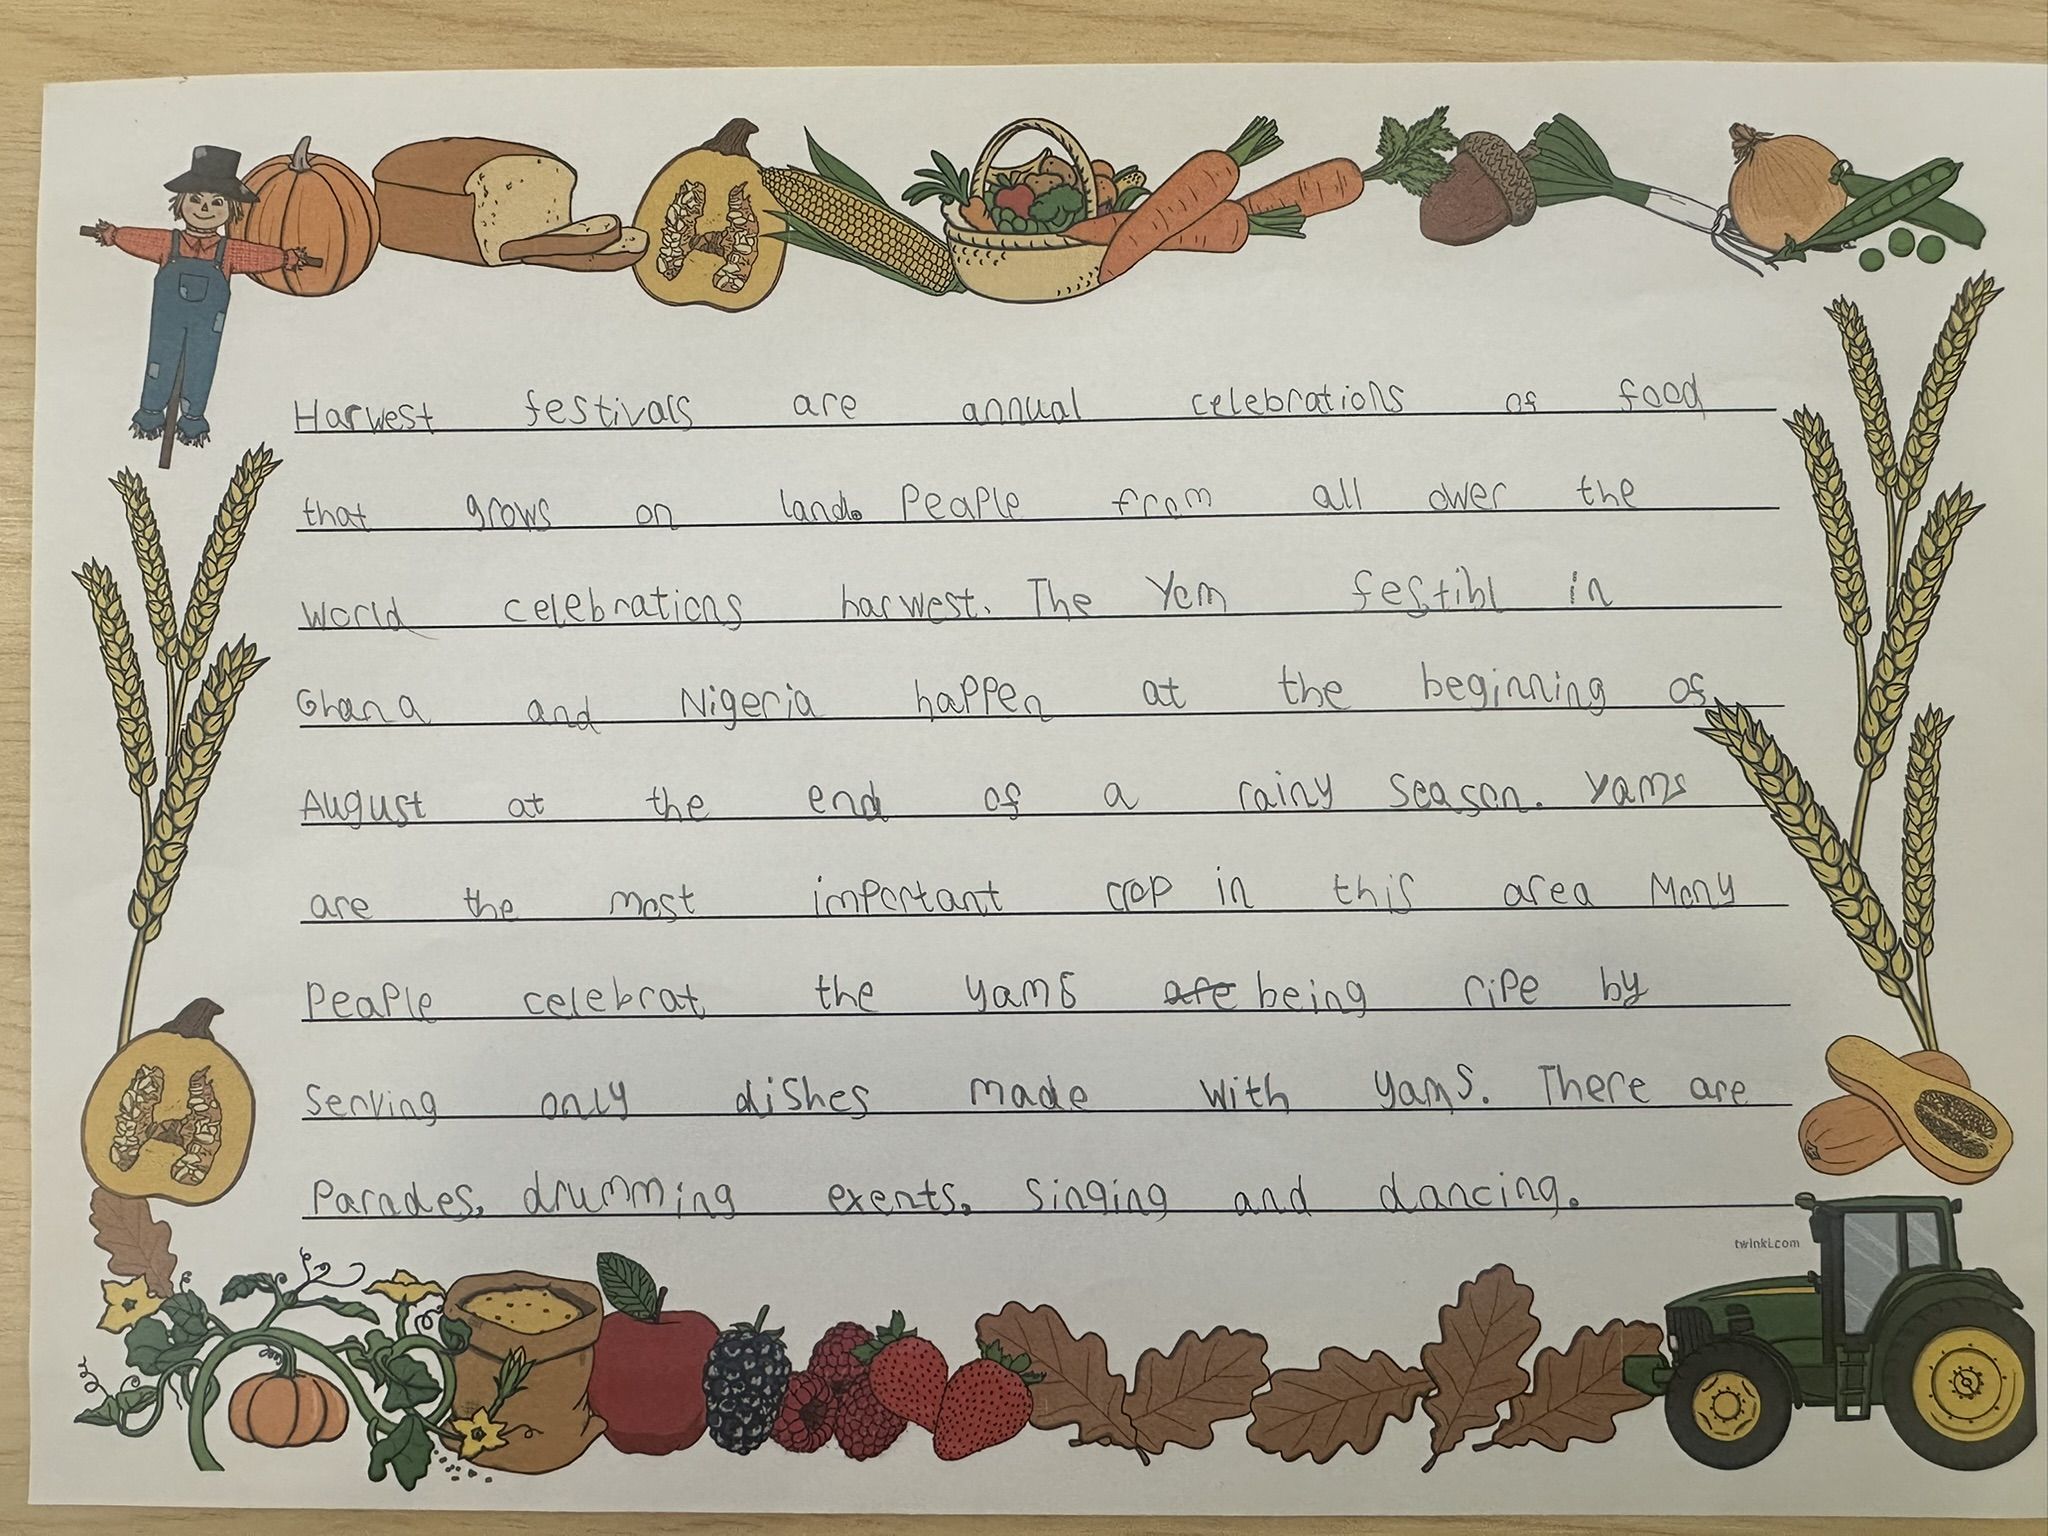 Harwest festivals are annual celebrations of food
that grows on land. Peaple from all ower the
world celebrations harwest. The Yem festibl in
Ghana and Nigeria happen at the beginning of
August at the end of a rainy season. Yams
are the most important crop in this area Many
Peaple celebrat the yams are being ripe by
serving only dishes made with yams. There are
Parades, drumming exents, singing and dancing.
twinkl.com